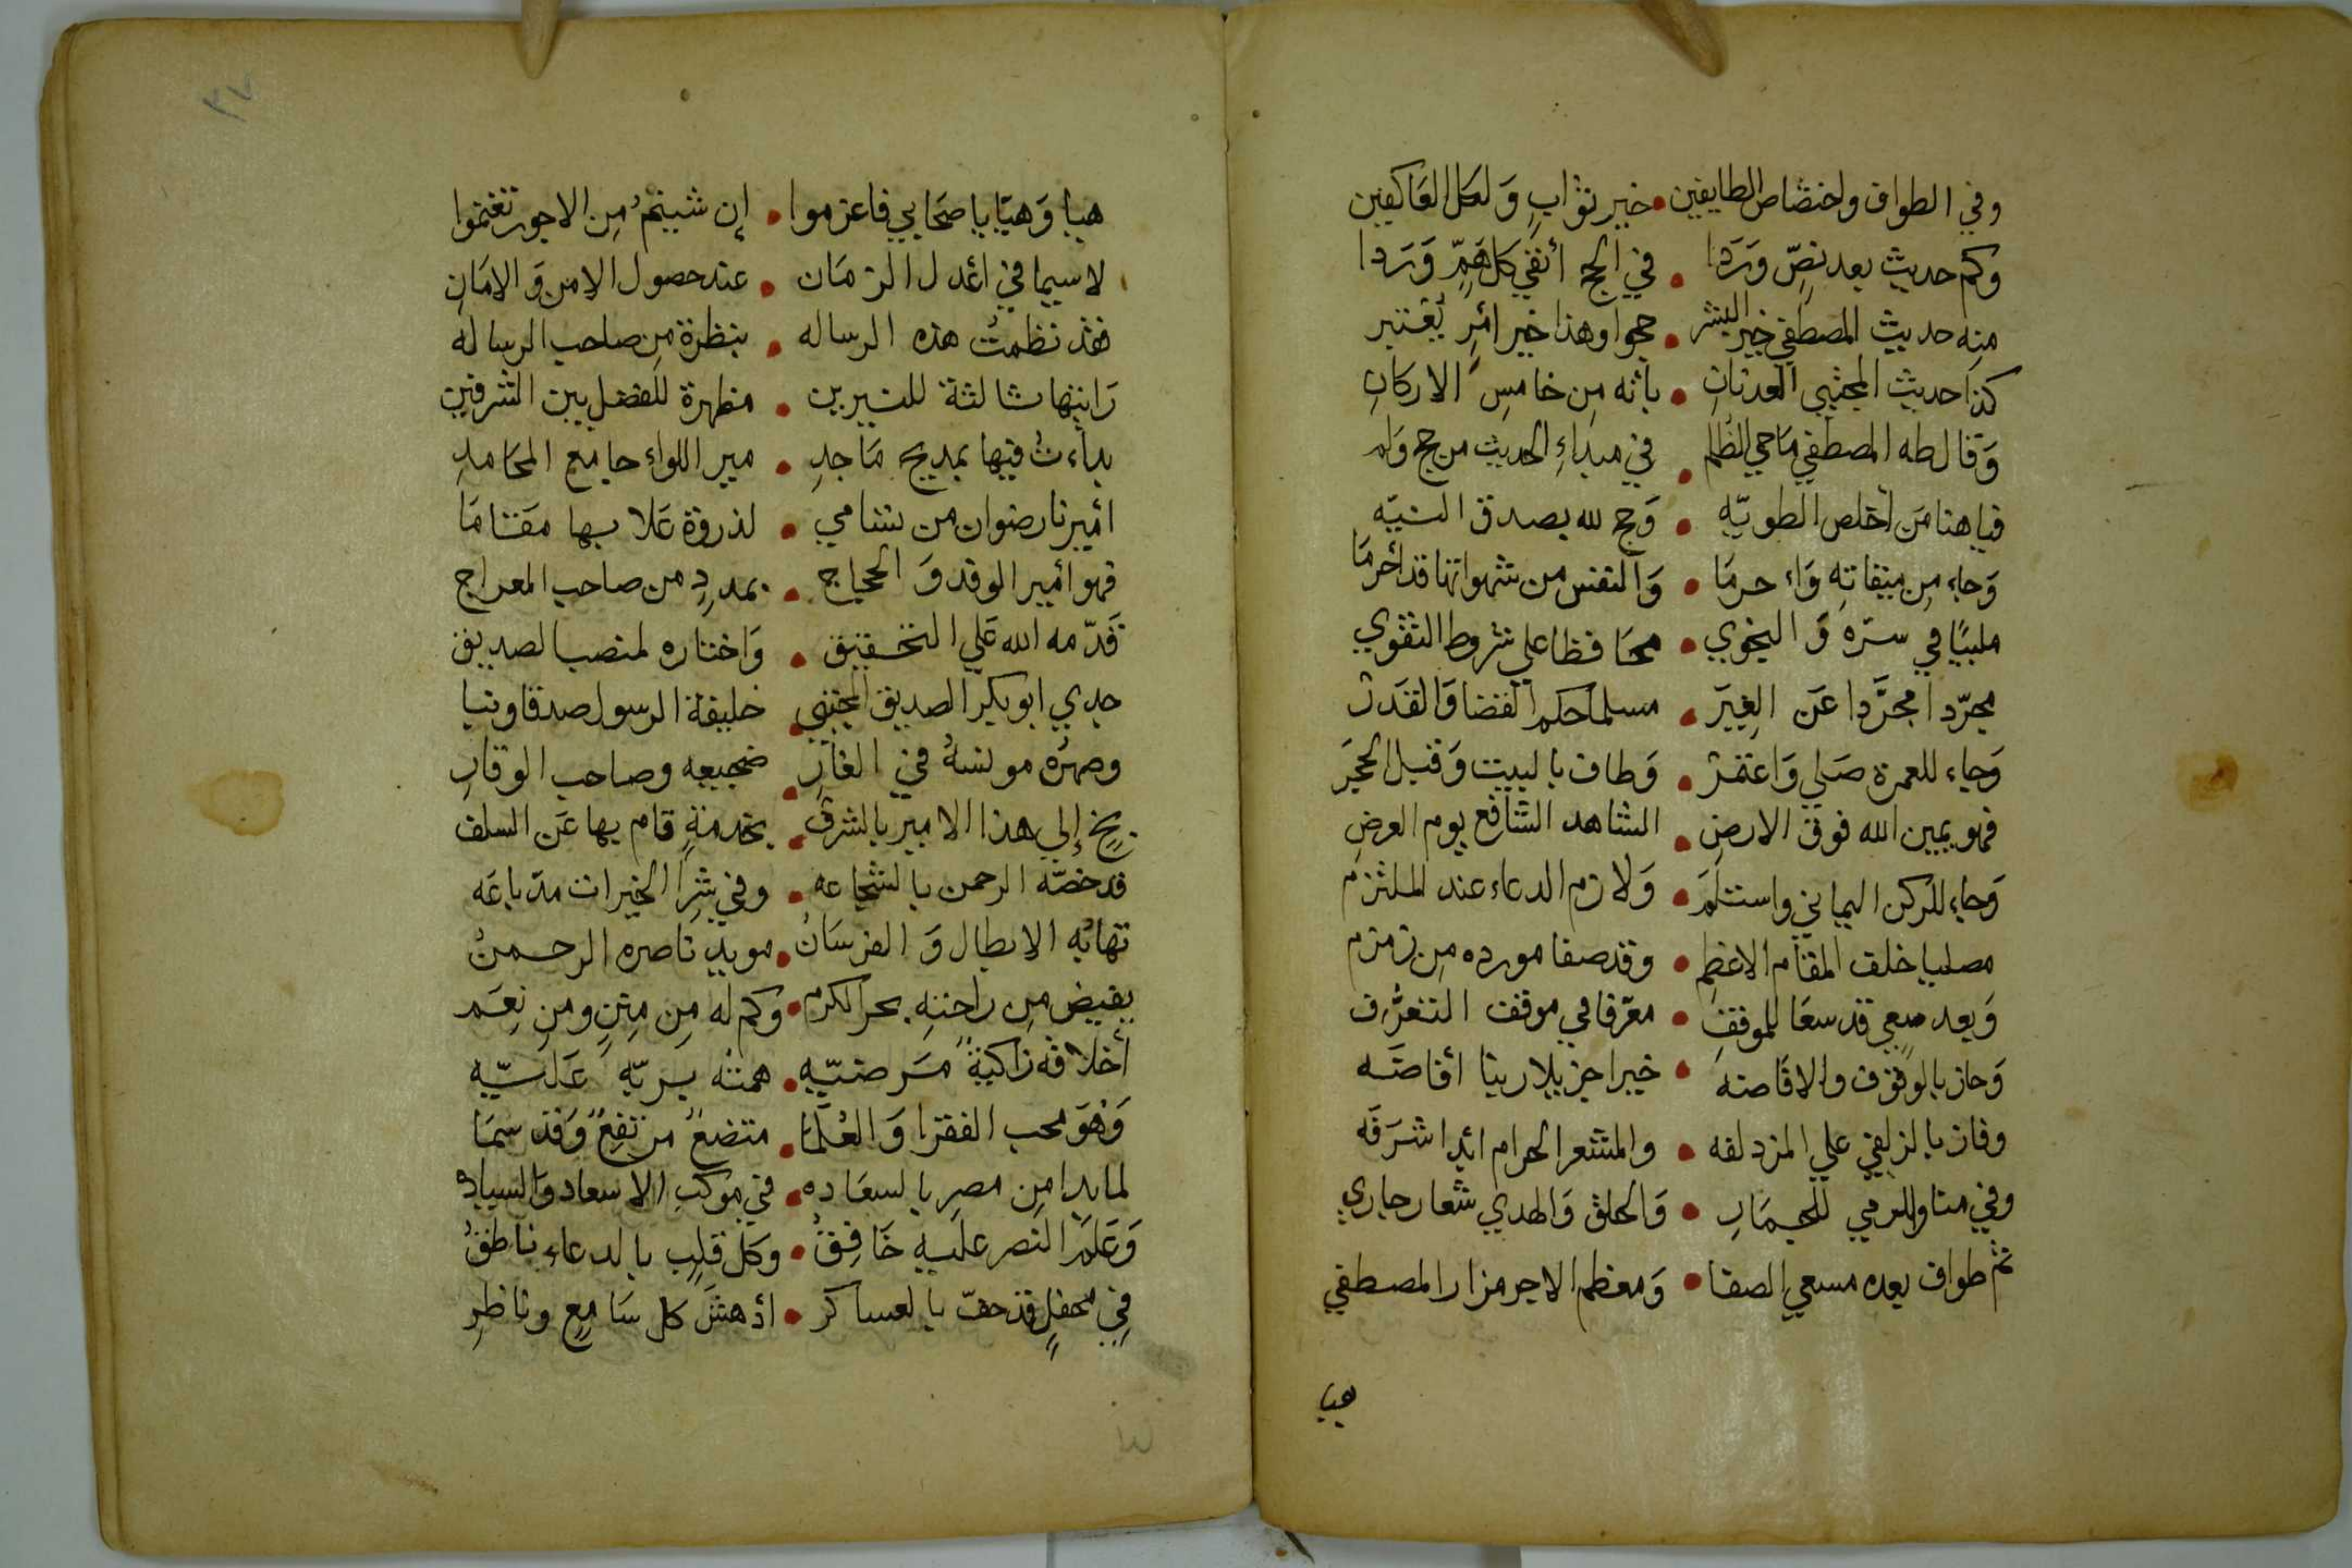 وفي الطواف واختصاص الطايفين • خير ثواب وَلكل العَاكفين
وكم حديث بعد نصٍّ وَرَدَا • في الحج أنفي كل هَمٍّ وَرَدا
منه حديث المصطفي خير البشر • حجوا وهذا خير أمرٍ يُعتبر
كذا حديث المجتبي العدنانِ • بأنه مِن خامسِ الاركانِ
وَقال طه المصطفي مَاحي الظلم • في مبداءِ الحديث من حج وَلم
فيا هنا مَن أخلص الطويّه • وَحج لله بصدق النيّه
وَجاء مِن ميقاته وَاحرمَا • وَالنفس من شهواتها قد أحرمَا
ملبيًا في سرّه وَ النجوي • محَافظا علي شروط التقوي
مجرّدا مجرَّدا عَن الغِيَر • مسلما حكم القضا وَالقدَر
وَجاء للعمرة صَلي وَاعتمر • وَطاف بالبيت وَقبل الحجَر
فهو يمين الله فوق الارضِ • الشاهد الشافع يوم العرضِ
وَجاء للركن اليماني واستلَم • وَلازم الدعاء عند الملتزم
مصليا خلف المقام الاعظم • وقد صفا مورده مِن زمزم
وَبعد سعي قد سعَا للموقف • معرّفا في موقف التعرُّف
وَحاز بالوقوف والافاضه • خيرا جزيلا ربنا أفاضَه
وفاز بالزلفي علي المزدلفه • والمشعر الحرام ابدا شرَفَه
وفي منا والرمي للجِمَارِ • وَالحلق وَالهدي شعار جاري
ثم طواف بعده مسعي الصفا • وَمعظم الاجر مزار المصطفي
هيا
هيا وَهيّا يا صحَابي فاعزموا • إن شيتمُ مِن الاجور تغنموا
لاسيما في اعدل الزمَان • عند حصول الامن وَ الامَانِ
فقد نظمتُ هذه الرساله • بنظرة مِن صاحب الرساله
رَايتها ثالثة للنيرين • مظهرة للفضل بين الشرفين
بداءتُ فيها بمديح مَاجدِ • مير اللواء جامع المحَامدِ
أميرنا رضوان من تسامي • لذروة عَلا بها مقامَا
فهو أمير الوفد وَ الحجاج • بمددٍ من صاحب المعراج
قدّمه الله عَلي التحقيق • وَاختاره لمنصب الصديق
جدي ابو بكر الصديق المجتبي • خليفة الرسول صدقا ونبا
وصهرُه مونسهُ في الغارِ • ضجيعه وصاحب الوقارِ
بخٍ إلي هذا الامير بالشرف • بخدمةٍ قام بها عَن السلف
قد خصّه الرحمن بالشجاعه • وفي شِرَا الخيرات مدّ باعَه
تهابُه الابطال وَ الفرسَانُ • مويد ناصره الرحمنُ
يفيض مِن راحتهِ بحر الكرم • وكم له مِن مِنَنٍ ومن نِعَم
أخلاقه زاكيةٌ مَرضيّه • همته سريّه عَليّه
وَهوَ محب الفقرا وَ العُلمَا • متضعٌ مرتفعٌ وَقد سمَا
لما بدا مِن مصر بالسعَاده • في موكب الاسعاد وَالسياده
وَعَلَمُ النصر عليه خَافِقُ • وكل قلبٍ بالدعاء ناطقُ
في محفلٍ قد حفّ بالعساكر • أدهشَ كل سَامعٍ وناظرِ